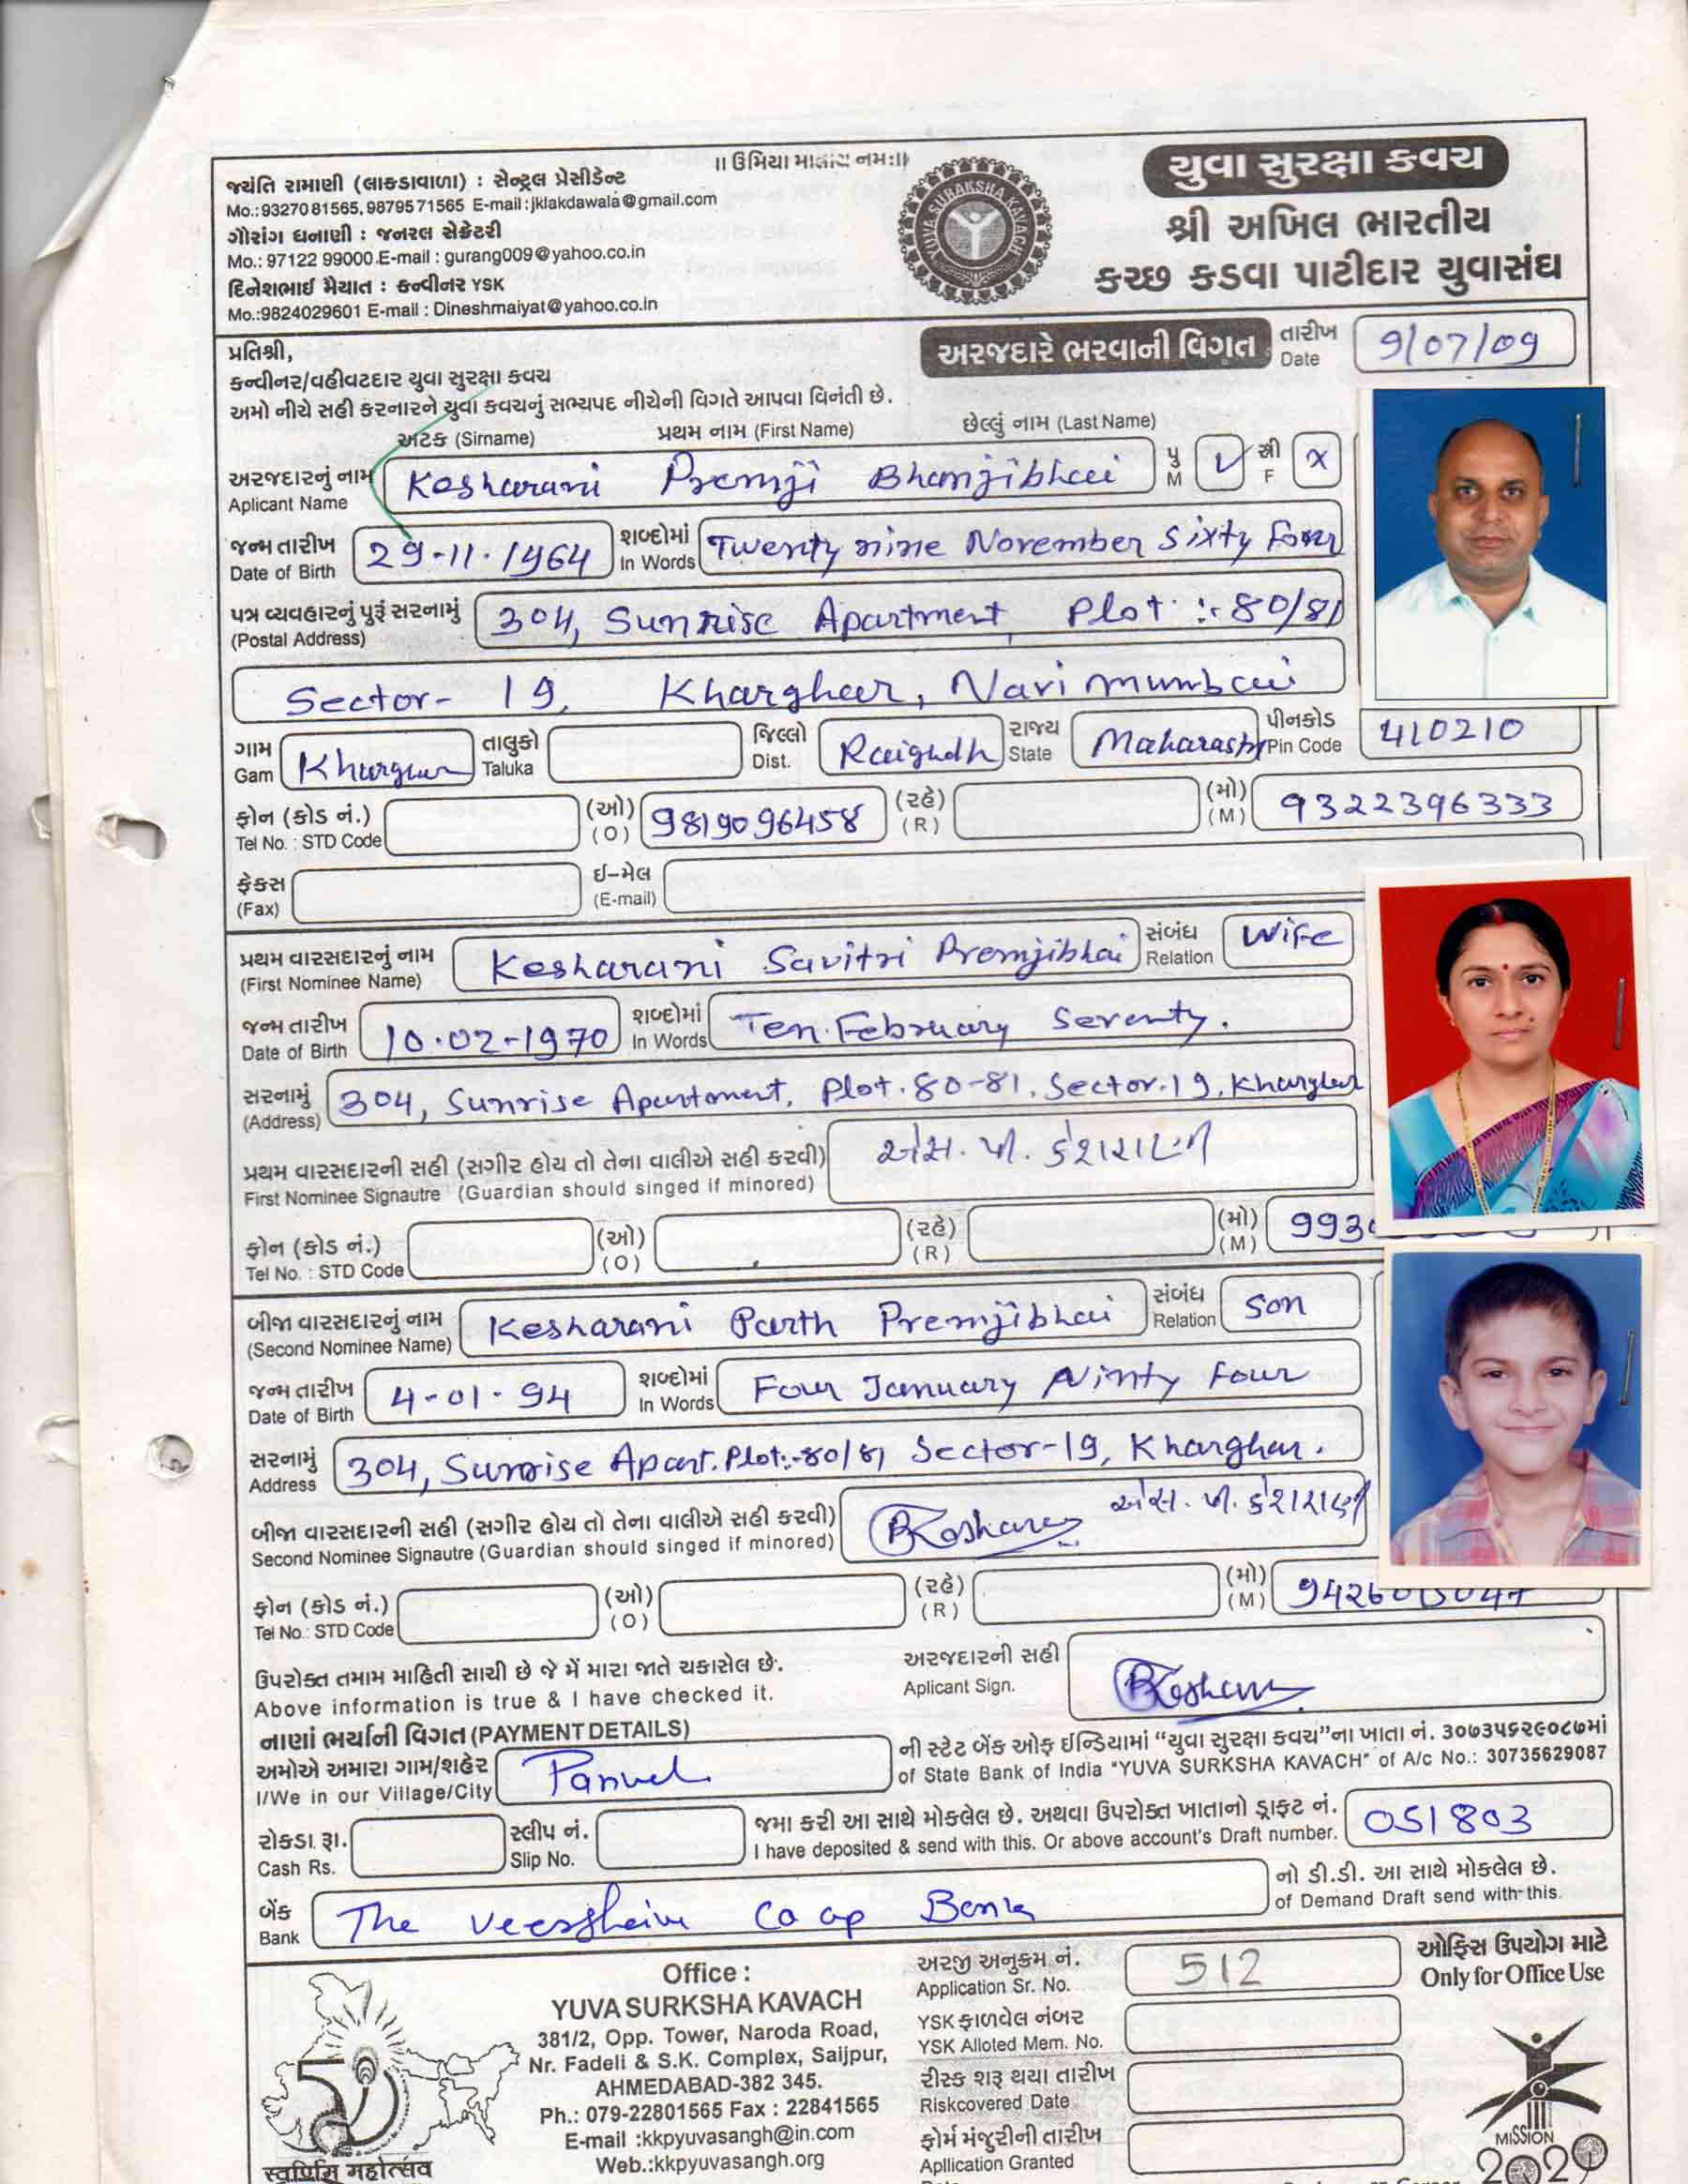 ॥ ઉમિયા માતાય નમઃ॥
જ્યંતિ રામાણી (લાકડાવાળા) : સેન્ટ્રલ પ્રેસીડેન્ટ
Mo.:9327081565,9879571565 E-mail:jklakdawala@gmail.com
ગૌરાંગ ધનાણી : જનરલ સેક્રેટરી
Mo.: 97122 99000 E-mail : gurang009@yahoo.co.in
દિનેશભાઈ મૈયાત : કન્વીનર YSK
Mo.:9824029601 E-mail : Dineshmaiyat@yahoo.co.in
YUVA SURAKSHA KAVACH
યુવા સુરક્ષા કવચ
શ્રી અખિલ ભારતીય
કચ્છ કડવા પાટીદાર યુવાસંઘ
અરજદારે ભરવાની વિગત તારીખ Date 9/07/09
પ્રતિશ્રી,
કન્વીનર/વહીવટદાર યુવા સુરક્ષા કવચ
અમો નીચે સહી કરનારને યુવા કવચનું સભ્યપદ નીચેની વિગતે આપવા વિનંતી છે.
અટક (Sirname) પ્રથમ નામ (First Name) છેલ્લું નામ (Last Name)
અરજદારનું નામ Aplicant Name Kesharani Premji Bhanjibhai પુ M ✓ સ્રી F X
જન્મ તારીખ Date of Birth 29-11-1964 શબ્દોમાં In Words Twenty nine November Sixty Four
પત્ર વ્યવહારનું પુરૂં સરનામું (Postal Address) 304, Sunrise Apartment, Plot :- 80/81
Sector- 19, Kharghar, Navi mumbai
ગામ Gam Kharghar તાલુકો Taluka જિલ્લો Dist. Raigadh રાજ્ય State Maharashtr પીનકોડ Pin Code 410210
ફોન (કોડ નં.) Tel No. : STD Code (ઓ) (O) 9819096458 (રહે) (R) (મો) (M) 9322396333
ફેક્સ (Fax) ઈ-મેલ (E-mail)
પ્રથમ વારસદારનું નામ (First Nominee Name) Kesharani Savitri Premjibhai સંબંધ Relation Wife
જન્મ તારીખ Date of Birth 10-02-1970 શબ્દોમાં In Words Ten February Seventy.
સરનામું (Address) 304, Sunrise Apartment, Plot. 80-81, Sector.19, Kharghar
પ્રથમ વારસદારની સહી (સગીર હોય તો તેના વાલીએ સહી કરવી) એસ. પી. કેશરાણી
First Nominee Signautre (Guardian should singed if minored)
ફોન (કોડ નં.) Tel No. : STD Code (ઓ) (O) (રહે) (R) (મો) (M) 993
બીજા વારસદારનું નામ (Second Nominee Name) Kesharani Parth Premjibhai સંબંધ Relation Son
જન્મ તારીખ Date of Birth 4-01-94 શબ્દોમાં In Words Four January Ninty Four
સરનામું Address 304, Sunrise Apart. Plot:-80/81 Sector-19, Kharghar.
બીજા વારસદારની સહી (સગીર હોય તો તેના વાલીએ સહી કરવી) એસ. પી. કેશરાણી
Second Nominee Signautre (Guardian should singed if minored)
ફોન (કોડ નં.) Tel No.: STD Code (ઓ) (O) (રહે) (R) (મો) (M)
ઉપરોક્ત તમામ માહિતી સાચી છે જે મેં મારા જાતે ચકાસેલ છે. અરજદારની સહી
Above information is true & I have checked it. Aplicant Sign.
નાણાં ભર્યાની વિગત (PAYMENT DETAILS)
અમોએ અમારા ગામ/શહેર Panvel ની સ્ટેટ બેંક ઓફ ઈન્ડિયામાં “યુવા સુરક્ષા કવચ”ના ખાતા નં. ૩૦૭૩૫૬૨૯૦૮૭માં
I/We in our Village/City of State Bank of India "YUVA SURKSHA KAVACH" of A/c No.: 30735629087
રોકડા રૂા. Cash Rs. સ્લીપ નં. Slip No. જમા કરી આ સાથે મોકલેલ છે. અથવા ઉપરોક્ત ખાતાનો ડ્રાફ્ટ નં. 051803
I have deposited & send with this. Or above account's Draft number.
બેંક Bank The Veershaiv Co op Bank નો ડી.ડી. આ સાથે મોકલેલ છે.
of Demand Draft send with this.
Office :
YUVA SURKSHA KAVACH
381/2, Opp. Tower, Naroda Road,
Nr. Fadeli & S.K. Complex, Saijpur,
AHMEDABAD-382 345.
Ph.: 079-22801565 Fax : 22841565
E-mail :kkpyuvasangh@in.com
Web.:kkpyuvasangh.org
અરજી અનુક્રમ નં. Application Sr. No. 512
ઓફિસ ઉપયોગ માટે
Only for Office Use
YSK ફાળવેલ નંબર
YSK Alloted Mem. No.
રીસ્ક શરૂ થયા તારીખ
Riskcovered Date
ફોર્મ મંજુરીની તારીખ
Apllication Granted
स्वर्णिम महोत्सव
MISSION